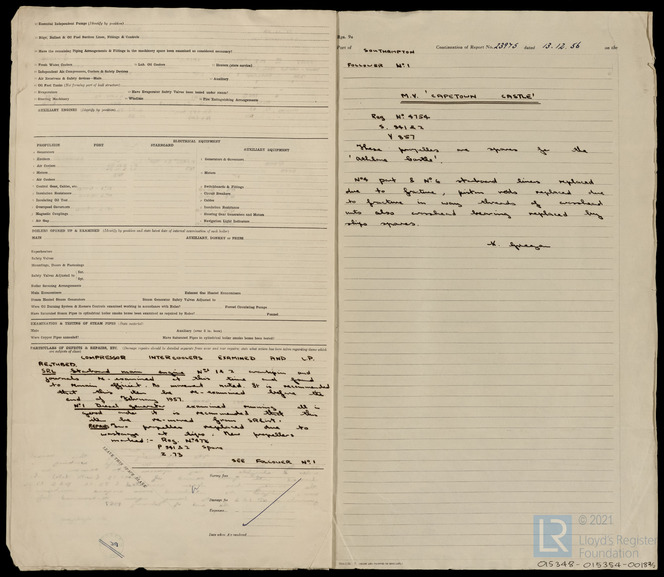 Essential Independent Pumps (Identify by position)
Bilge, Ballast & Oil Fuel Suction Lines, Fittings & Controls
Have the remaining Piping Arrangements & Fittings in the machinery space been examined as considered necessary?
Fresh Water Coolers
Lub. Oil Coolers
Heaters
Independent Air Compressors, Coolers & Safety Devices
Air Receivers & Safety Devices—Main
Auxiliary
Oil Fuel Tanks (Not forming part of hull structure)
Evaporators
Have Evaporator Safety Valves been tested under steam?
Steering Machinery
Windlass
Fire Extinguishing Arrangements
AUXILIARY ENGINES (Identify by position)
ELECTRICAL EQUIPMENT
PROPULSION PORT STARBOARD AUXILIARY EQUIPMENT
Generators
Exciters
Generators & Governors
Air Coolers
Motors
Motors
Air Coolers
Control Gear, Cables, etc.
Switchboards & Fittings
Insulation Resistance
Circuit Breakers
Insulating Oil Test
Cables
Overspeed Governors
Insulation Resistance
Magnetic Couplings
Steering Gear Generators and Motors
Air Gap
Navigation Light Indicators
MAIN AUXILIARY, DONKEY or PRESS.
Superheaters
Safety Valves
Mountings, Doors & Fastenings
Safety Valves Adjusted to Sat.
Spt.
Boiler Securing Arrangements
Main Economisers
Exhaust Gas Heated Economisers
Steam Heated Steam Generators
Steam Generator Safety Valves Adjusted to
Were Oil Burning System, & Remote Controls examined working in accordance with Rules?
Forced Circulating Pumps
Have Saturated Steam Pipes in cylindrical boiler smoke boxes been examined as required by Rules?
Funnel
EXAMINATION & TESTING OF STEAM PIPES (State material)
Main Auxiliary (over 3 in. bore)
Were Copper Pipes annealed?
Have Saturated Pipes in cylindrical boiler smoke boxes been tested?
PARTICULARS OF DEFECTS & REPAIRS, ETC.
COMPRESSOR INTERCOOLERS EXAMINED AND L.P.
RETUBED.
SRL Starboard main engine Nos 1 & 2 crankpin and
journals re-examined at this time and found
to remain efficient. It is recommended
that this item be re-examined before the
end of February 1957.
No 1 Diesel generator examined running. It is
good order it is recommended that this
item be removed from SRList.
REPAIR: Two propellers replaced due to
wastage at tips. New propellers
marked:- Reg. No 472
P 34182 Spare
2.73
SEE FOLLOWER No 1
Survey fee
Damage fee
Expenses
Date when A/c rendered
Rpt. 9c
Port of SOUTHAMPTON Continuation of Report No. 23975 dated 13.12.56 on the
FOLLOWER No 1
M.V. "CAPETOWN CASTLE"
Reg No 4754
S. 34182
V 857
These propellers are spares for the
'Athlone Castle'.
No 4 port & No 6 starboard liners replaced
due to fracture, piston rods replaced due
to fracture in way threads of crosshead
nuts also crosshead bearing replaced by
ships spares.
© 2021
LR
Lloyd's Register
Foundation
015348-015354-0018R5